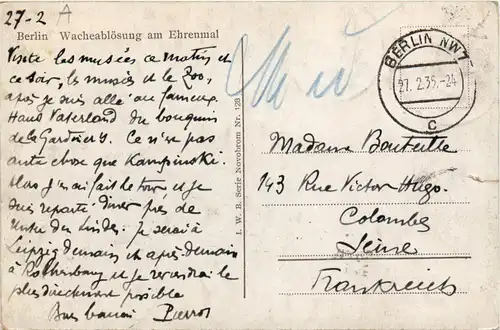 27-2 A
Berlin Wacheablösung am Ehrenmal
Visite les musées ce matin et
ce soir, les musées et le Zoo,
après je suis allé au fameux
Haus Vaterland du bouquin
de la Gardner's. Ce n'est pas
autre chose que Kampinski.
Alors j'en ai fait le tour, et je
suis reparti dîner près de
Unter den Linden. Je serai à
Leipzig demain et après demain
à Rothenburg et je reviendrai le
plus directement possible
Bons baisers Pierrot
I. W. B. Serie Novobrom Nr. 128
BERLIN NW7
27.2.35.-24
c
Madame Bouteille
143 Rue Victor Hugo.
Colombes
Seine
Frankreich